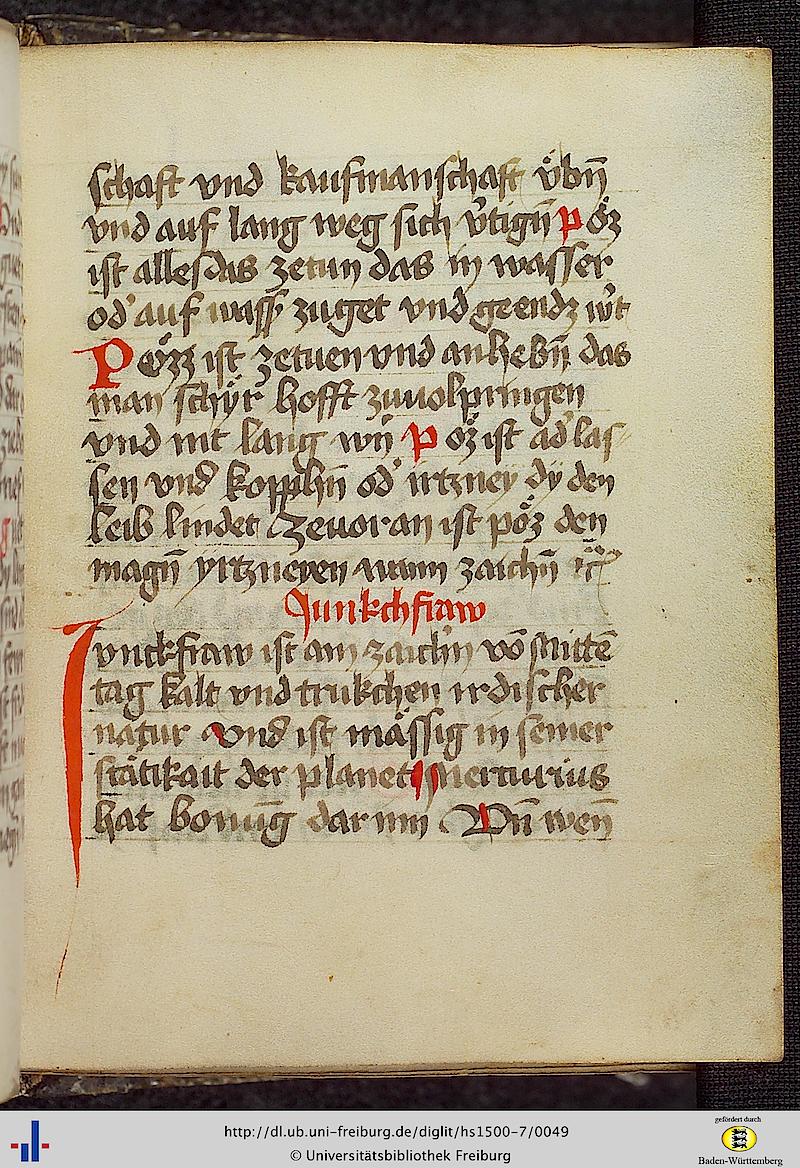 schaft vnd kaufmanschaft v̈bn̄
vnd auf lang weg sich v̓tign̄ pöz
ist alles das zetun das in wasser
od' auf wass' zuget vnd geendz w̓t
Pözz ist zetuen vnd anhebn̄ das
man schÿr hofft zuuolpringen
vnd nit lang wn̄ pöz ist ad'las-
sen vnd kopphn̄ od' irtzney dy den
leib lindet Zeuoran ist pöz den
magn̄ yrtzneyen zaichn̄
Junkchfraw
Junckfraw ist am zaich'n vō Mittē
tag kalt vnd trukchen irdischer
natur Vnd ist mässig in seiner
stätikait der planet Mercurius
hat bonūg dar inn Vn̄ wen̄
http://dl.ub.uni-freiburg.de/diglit/hs1500-7/0049
© Universitätsbibliothek Freiburg
gefördert durch
Baden-Württemberg